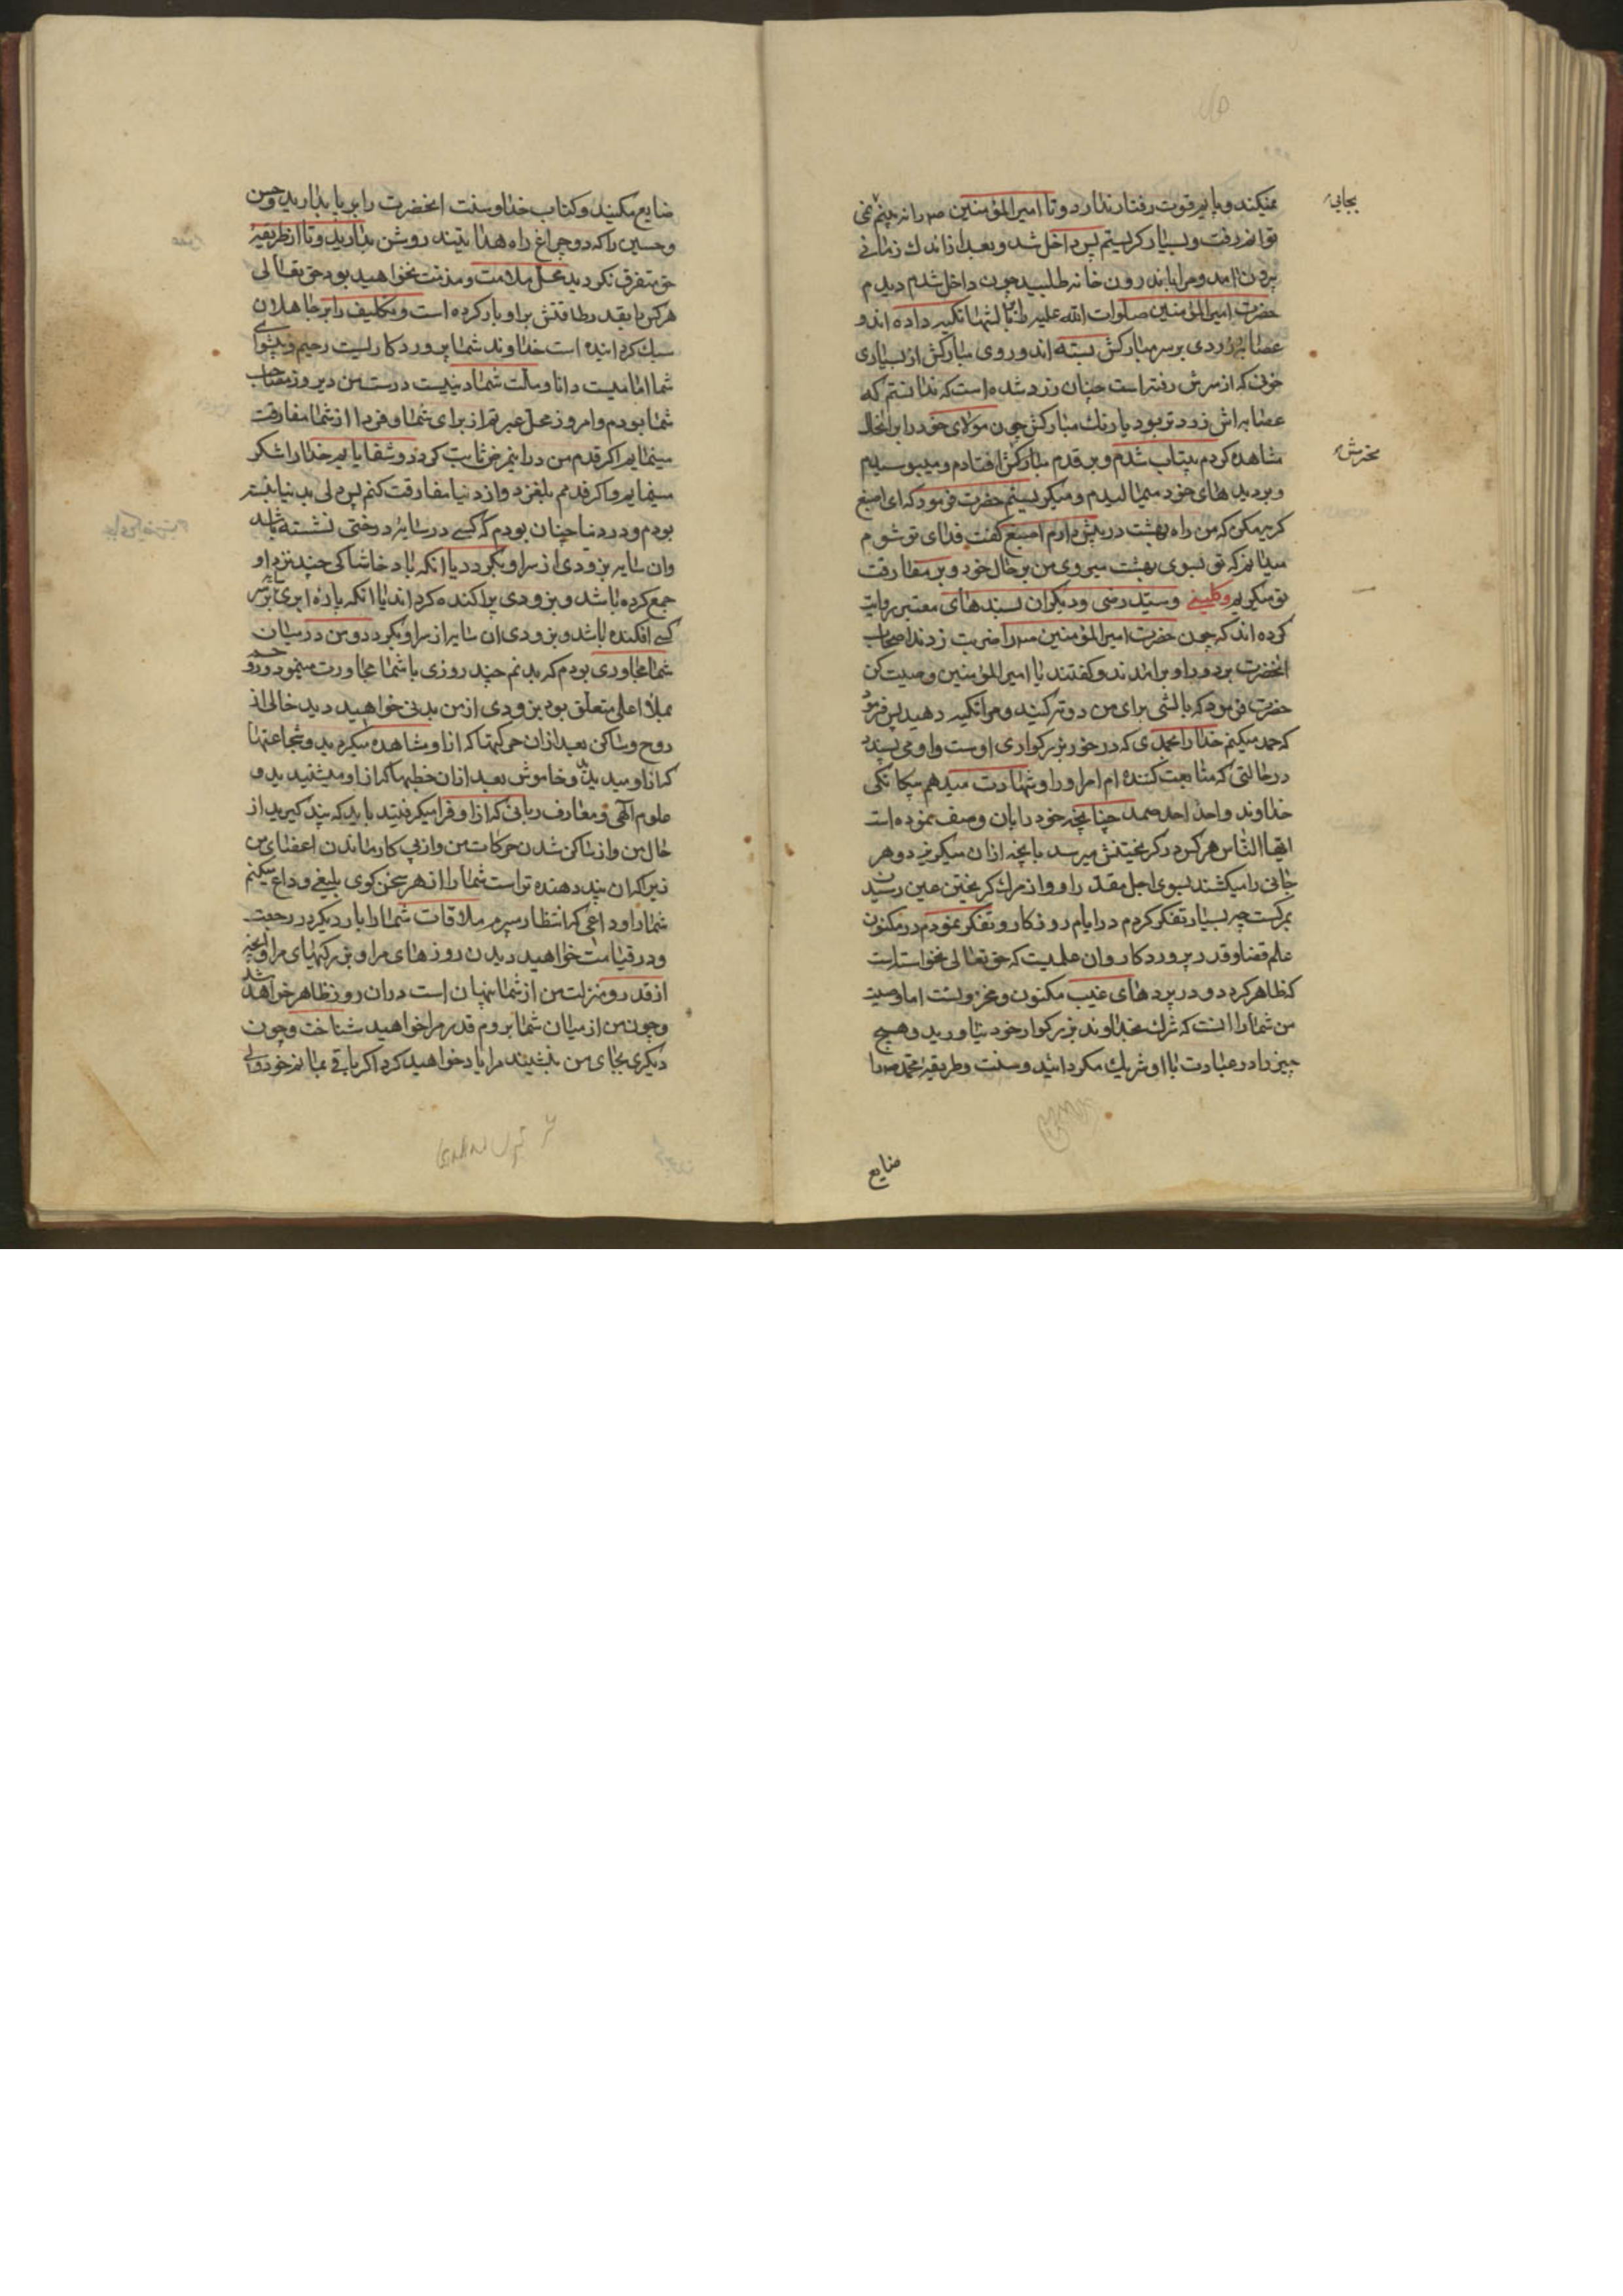 نمیکند و پایم قوت رفتار ندارد و تا امیر المؤمنین ص را نه بینم نمی
توانم رفت و بسیار کریستم پس داخل شد و بعد از اندك زمانی
بیرون امد و مرا باندرون خانه طلبید چون داخل شدم دیدم
حضرت امیر المؤمنین صلوات الله علیه را بر بالشها تکیه داده اند و
عصابه زردی بر سر مبارکش بسته اند و روی مبارکش از بسیاری
خونی که از سرش رفته است چنان زرد شده است که ندانستم که
عصابه اش زرد تر بود یا رنك مبارکش چون مولای خود را بر انحال
مشاهده کردم بیتاب شدم و بر قدم مبارکش افتادم و میبوسیدم
و بر دیده های خود میمالیدم و میکریستم حضرت فرمود که ای اصبغ
کریه مکن که من راه بهشت در پیش دارم اصبغ کفت فدای تو شوم
میدانم که تو بسوی بهشت میروی من بر حال خود و بر مفارقت
تو میکریم وکلینی و سید رضی و دیکران بسندهای معتبر روایت
کرده اند که چون حضرت امیر المؤمنین ص را ضربت زدند اصحاب
انحضرت بر دور او بر امدند و کفتند یا امیر المؤمنین وصیت کن
حضرت فرمود که بالشی برای من دوته کنید و مرا تکیه دهید پس فرمود
که حمد میکنم خدا را بحمدی که در خور بزرکواری اوست و او می پسندد
در حالتی که متابعت کننده ام امر او را و شهادت میدهم بیکانکی
خداوند واحد احد صمد چنانچه خود را بان وصف نموده است
ایها الناس هر کس در کریختنش میرسد بانچه ازان میکریزد و هر
جانی را میکشند بسوی اجل مقدر او و از مرك کریختن عین رسیدن
بمرکست چه بسیار تفکر کردم در ایام روزکار و تفکر نمودم در مکنون
علم قضا و قدر پروردکار و ان علمیست که حق تعالی نخواسته است
که ظاهر کردد و در پردهای غیب مکنون و مخزونست اما وصیت
من شما را انست که شرك بخداوند بزرکوار خود نیاورید و هیچ
چیز را در عبادت با او شریك مکردانید و سنت و طریقه محمد ص را
بجائی
ضایع
ضایع مکنید و کتاب خدا و سنت انحضرت را بر پا بدارید و حسن
و حسین را که دو چراغ راه هدایتند روشن بدارید و تا از طریقه
حق متفرق نکردید محل ملامت و مذمت نخواهید بود حق تعالی
هر کس را بقدر طاقتش بر او بار کرده است و تکالیف را بر جاهلان
سبك کردانیده است خداوند شما پروردکاریست رحیم و پیشوای
شما امامیست دانا و ملت شما دینیست درست من دیروز مصاحب
شما بودم و امروز محل عبرتم از برای شما و فردا از شما مفارقت
مینمایم اکر قدم من در این مرض ثابت کردد و شفا یابم خدا را شکر
مینمایم و اکر قدمم بلغزد و از دنیا مفارقت کنم پس دلی بدنیا نبسته
بودم و در دنیا چنان بودم که کسی در سایه درختی نشسته باشد
و ان سایه بزودی از سر او بکردد یا انکه باد خاشاکی چند نزد او
جمع کرده باشد و بزودی پراکنده کرداند یا انکه پاره ابری بر سر
کسی افکنده باشد و بزودی ان سایه از سر او بکردد و من در میان
شما مجاوری بودم که بدنم چند روزی با شما مجاورت مینمود و روحم
بملأ اعلی متعلق بود بزودی از من بدنی خواهید دید خالی از
روح و ساکن بعد از ان حرکتها که از او مشاهده میکردید و شجاعتها
که از او میدیدید و خاموش بعد از ان خطبها که از او میشنیدید و
علوم الهی و معارف ربانی که از او فرا میکرفتید باید که پند کیرید از
حال من و از ساکن شدن حرکات من و از پی کار ماندن اعضای من
زیرا که ان پند دهنده تر است شما را از هر سخن کوی بلیغی وداع میکنم
شما را وداعی که انتظار میبرم ملاقات شما را بار دیکر در رجعت
و در قیامت خواهید دید ان روزهای مرا و بزرکیهای مرا و انچه
از قدر و منزلت من از شما پنهان است در ان روز ظاهر خواهد شد
و چون من از میان شما بروم قدر مرا خواهید شناخت و چون
دیکری بجای من بنشیند مرا یاد خواهید کرد اکر باقی بمانم خود ولی